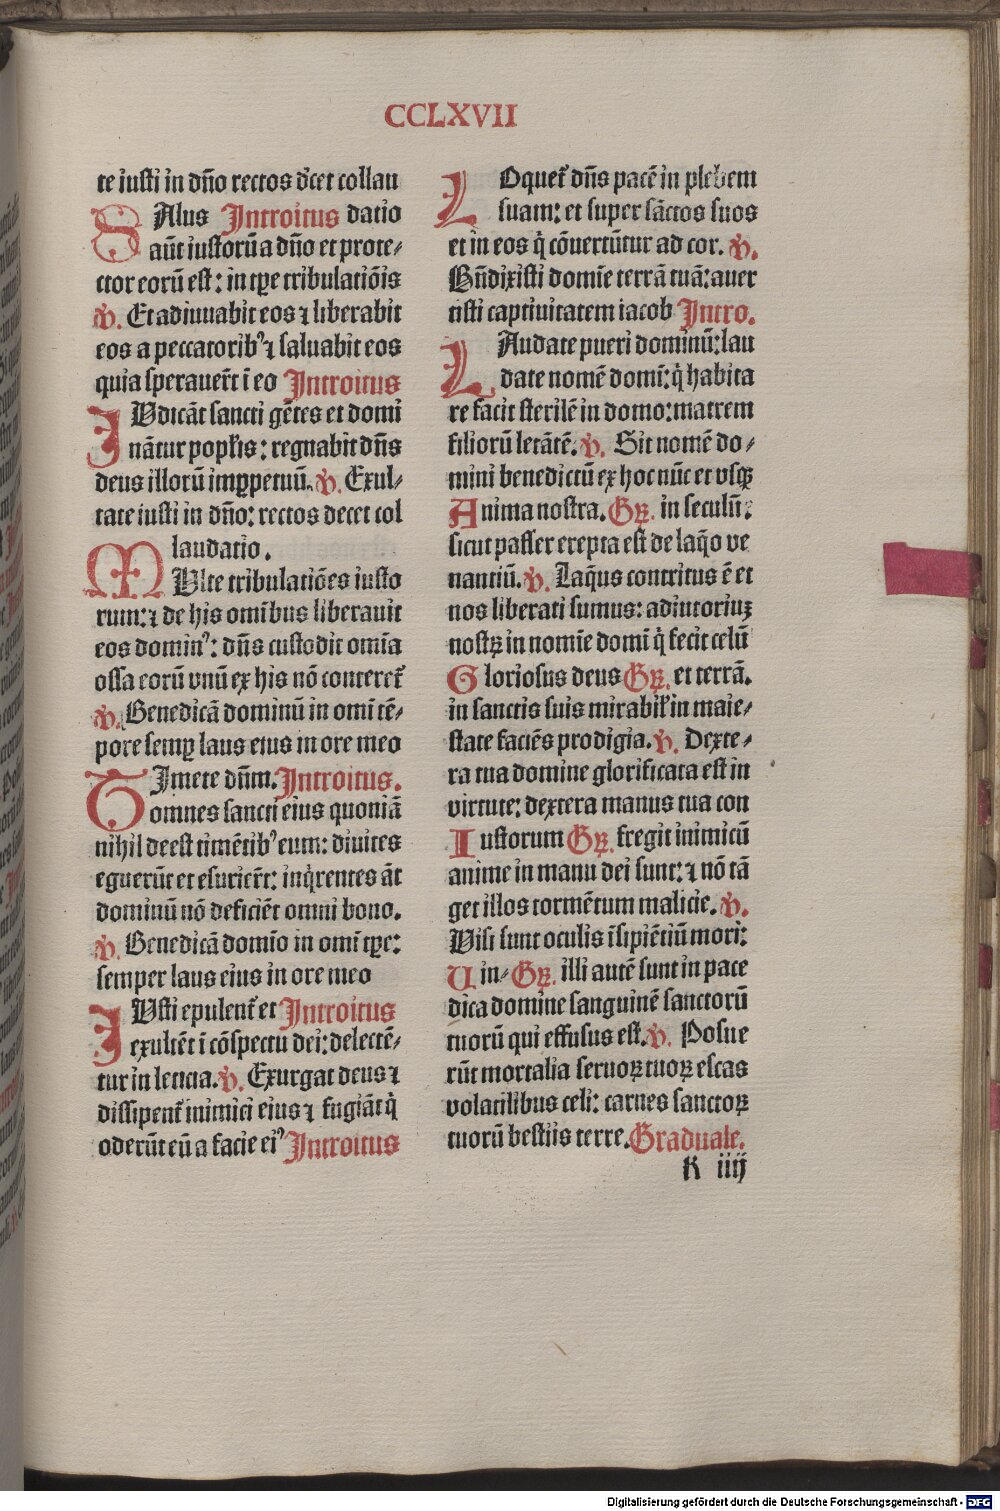 CCLXVII
te iusti in dño rectos dꝛ̄cet collau
SAlus Introitus datio
aūt iustorū a dño et prote⸗
ctor eorū est: in tꝑe tribulatiōis
℣. Et adiuuabit eos ⁊ liberabit
eos a peccatorib⁹ ⁊ saluabit eos
quia sperauerūt ī eo Introitus
IVdicāt sancti gētes et domi
nātur poplis: regnabit dñs
deus illorū imꝑpetuū. ℣. Exul⸗
tate iusti in dño: rectos decet col
laudatio.
MVlte tribulatiōes iusto
rum: ⁊ de his omībus liberauit
eos domin⁹: dñs custodit omīa
ossa eorū vnū ex his nō conteret̄
℣. Benedicā dominū in omī tē⸗
pore semꝑ laus eius in ore meo
TImete dñm. Introitus.
omnes sancti eius quoniā
nihil deest timētib⁹ eum: diuites
eguerūt et esuriēr̄t: inq̄rentes āt
dominū nō deficiēt omni bono.
℣. Benedicā domīo in omī tꝑe:
semper laus eius in ore meo
IVsti epulent̄ et Introitus
exultēt ī cōspectu dei: delectē⸗
tur in leticia. ℣. Exurgat deus ⁊
dissipent̄ inimici eius ⁊ fugiāt q̄
oderūt eū a facie ei⁹ Introitus
LOquet̄ dñs pacē in plebem
suam: et super sāctos suos
et in eos q̄ cōuertūtur ad cor. ℣.
Bñdixisti domīe terrā tuā: auer
tisti captiuitatem iacob Intro.
LAudate pueri dominū: lau
date nomē domī: q̄ habita
re facit sterilē in domo: matrem
filiorū letātē. ℣. Sit nomē do⸗
mini benedictū ex hoc nūc et vsqꝫ
Anima nostra. Gꝝ. in seculū:
sicut passer erepta est de laq̄o ve
nantiū. ℣. Laq̄us contritus ē et
nos liberati sumus: adiutoriuꝫ
nostꝝ in nomīe domī q̄ fecit celū
Gloriosus deus Gꝝ. et terrā.
in sanctis suis mirabil̄ in maie⸗
state faciēs prodigia. ℣. Dexte⸗
ra tua domine glorificata est in
virtute: dextera manus tua con
Iustorum Gꝝ. fregit inimicū
anime in manu dei sunt: ⁊ nō tā
get illos tormētum malicie. ℣.
Visi sunt oculis īsipiētiū mori:
Vin⸗ Gꝝ. illi autē sunt in pace
dica domine sanguinē sanctorū
tuorū qui effusus est. ℣. Posue
rūt mortalia seruoꝝ tuoꝝ escas
volatilibus celi: carnes sanctoꝝ
tuorū bestiis terre. Graduale.
K iiij
Digitalisierung gefördert durch die Deutsche Forschungsgemeinschaft - DFG